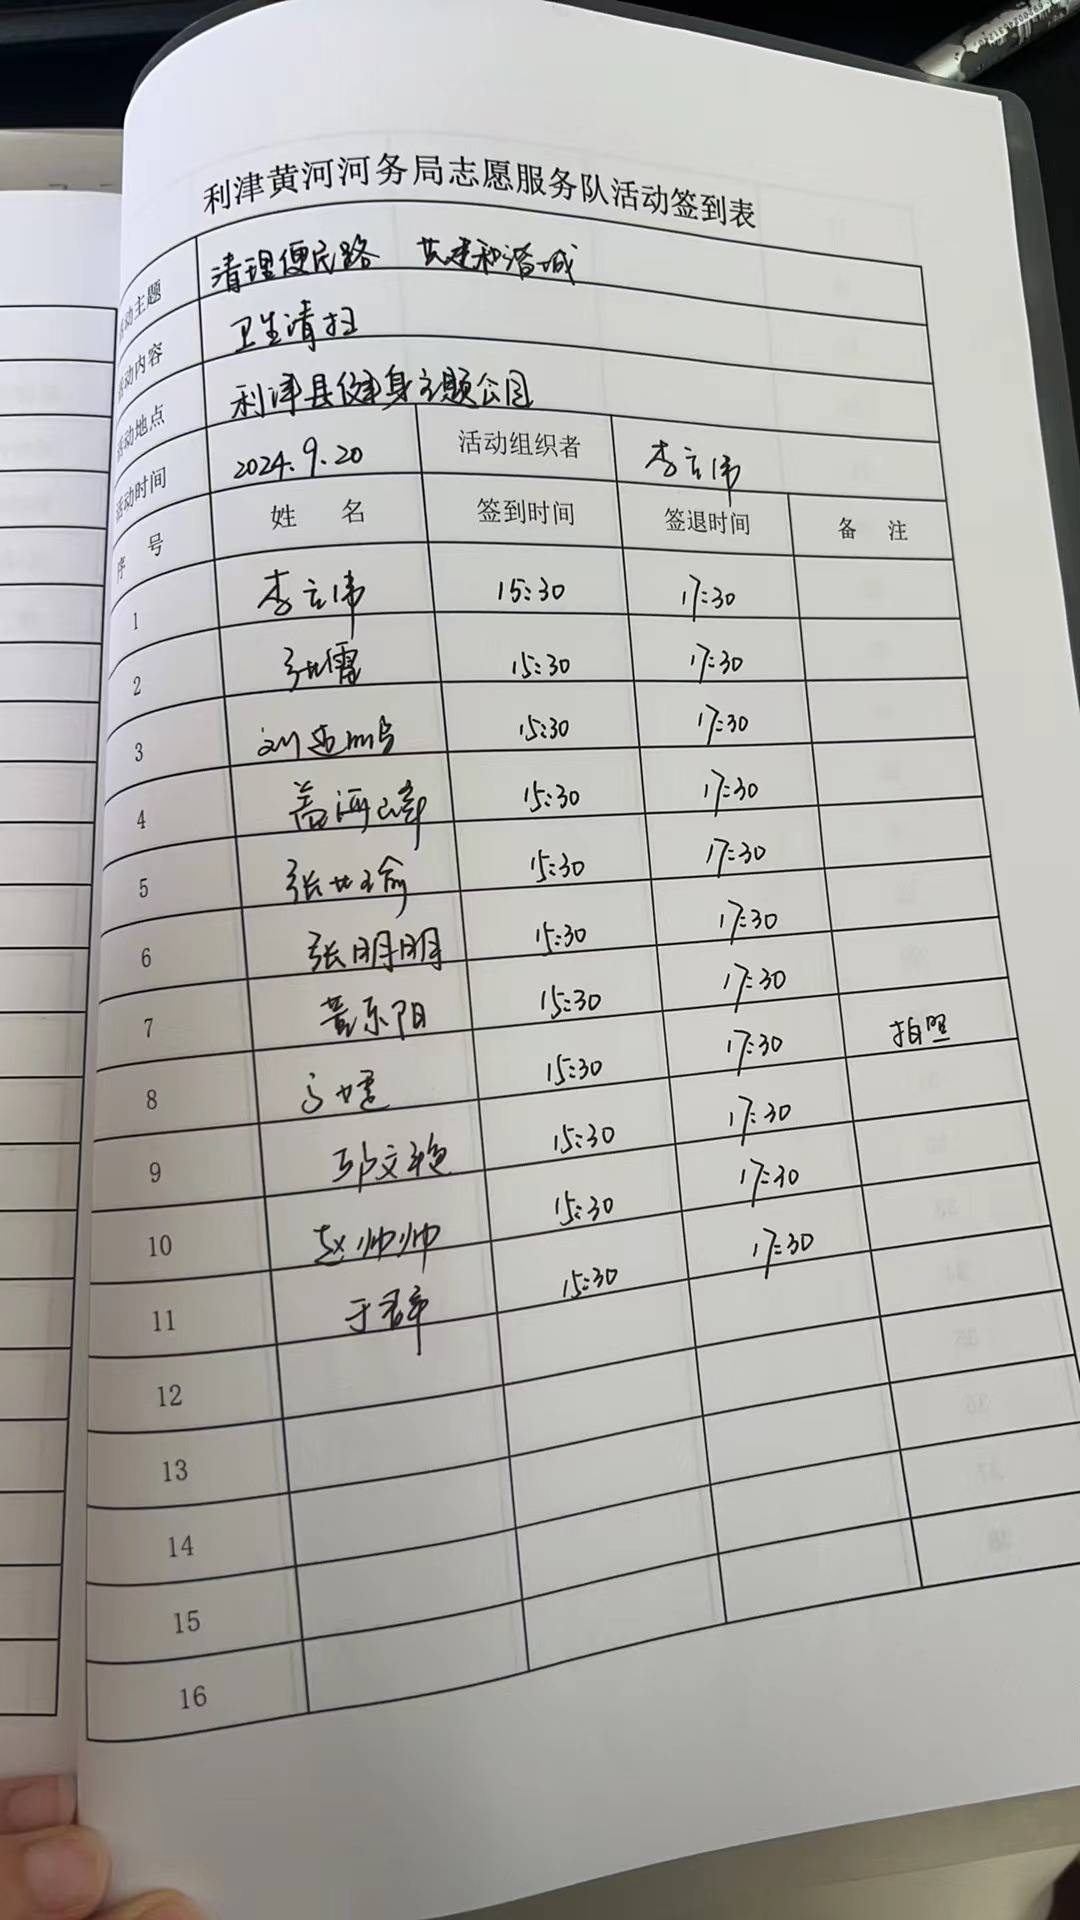 利津黄河河务局志愿服务队活动签到表
活动主题 清理便民路 共建和谐城
活动内容 卫生清扫
活动地点 利津县健身主题公园
活动时间 2024.9.20 活动组织者 李立伟
序 号 姓 名 签到时间 签退时间 备 注
1 李立伟 15:30 17:30
2 15:30 17:30
3 15:30 17:30
4 盖河峰 15:30 17:30
5 15:30 17:30
6 张明明 15:30 17:30
7 黄东阳 15:30 17:30
8 15:30 17:30 拍照
9 15:30 17:30
10 赵帅帅 15:30 17:30
11 15:30 17:30
12
13
14
15
16